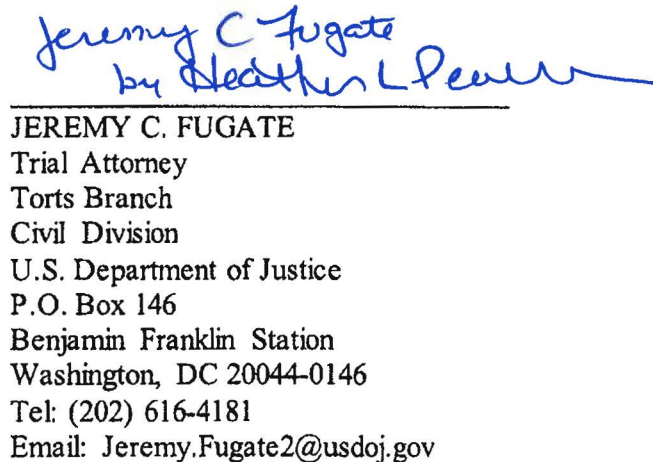 Jeremy C Fugate
by Heather L Pearl
JEREMY C. FUGATE
Trial Attorney
Torts Branch
Civil Division
U.S. Department of Justice
P.O. Box 146
Benjamin Franklin Station
Washington, DC 20044-0146
Tel: (202) 616-4181
Email: Jeremy.Fugate2@usdoj.gov